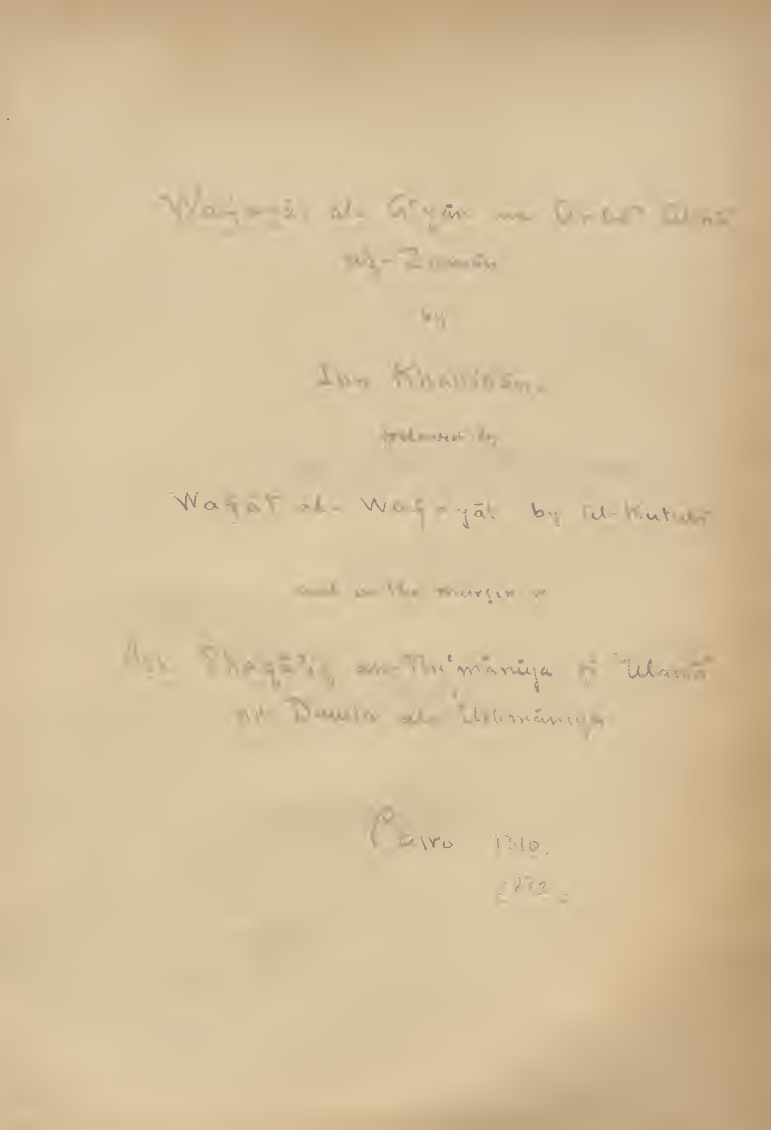 Wafayāt al-A'yān wa Anbā' Abnā'
az-Zamān
by
Ibn Khallikān.
followed by
Wafāt al-Wafayāt by al-Kutubī
and on the margin is
Ash Shaqā'iq an-Nu'māniya fī 'Ulamā'
ad-Dawla al-'Uthmāniya
Cairo 1310.